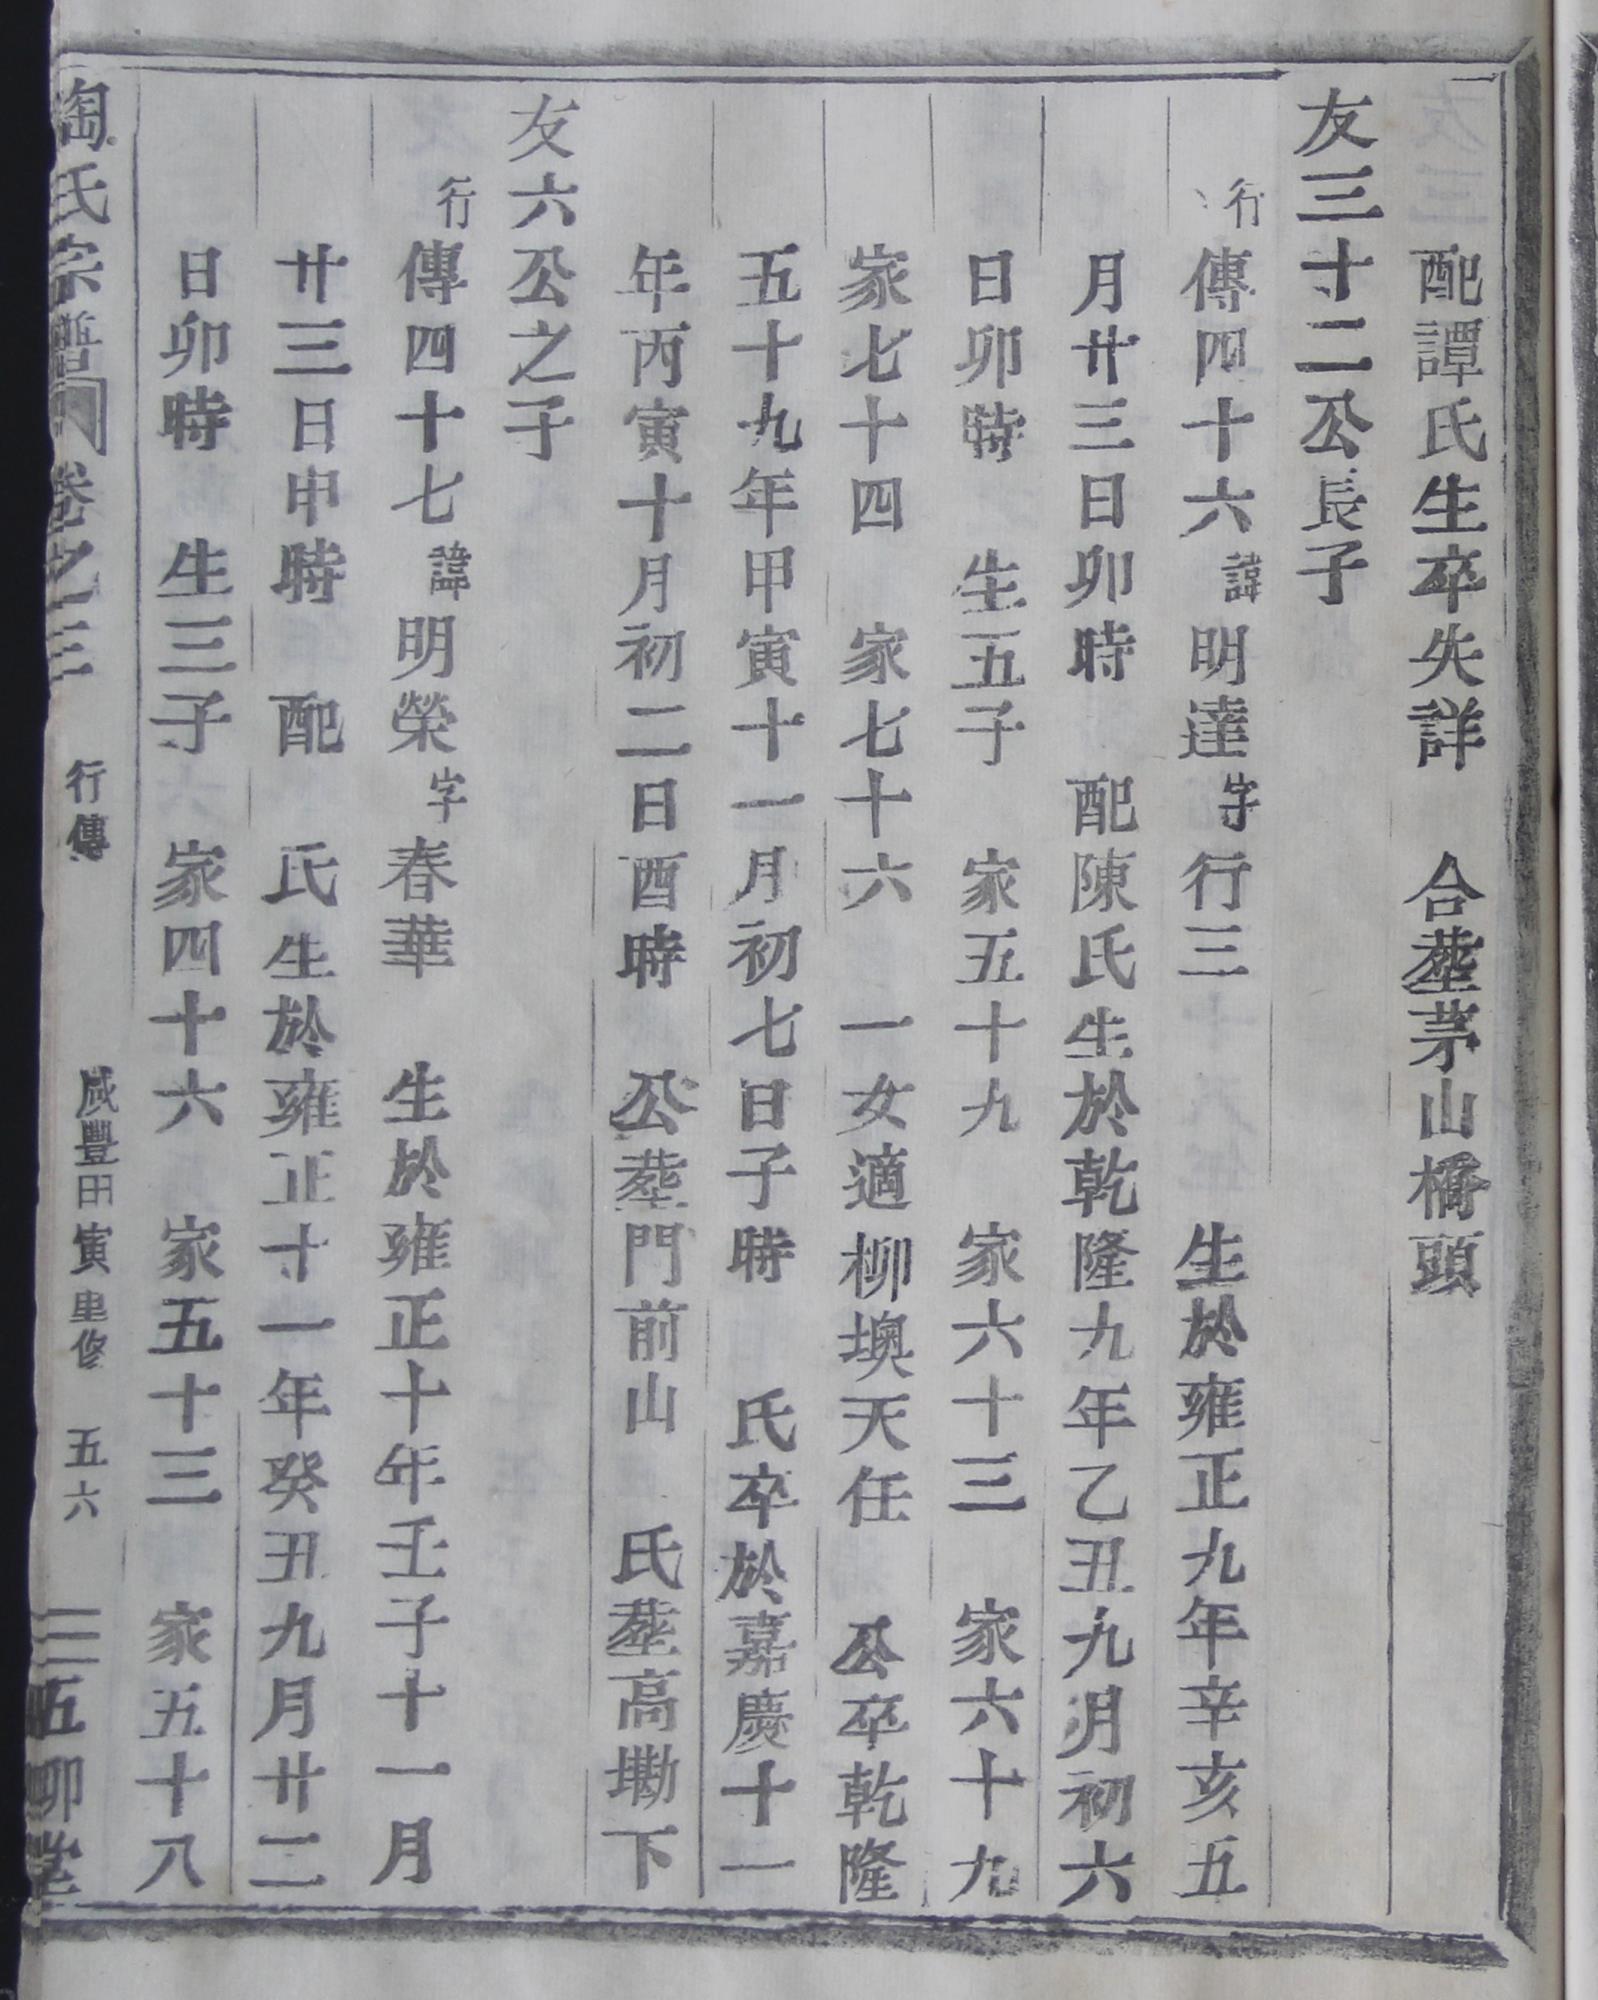 配譚氏生卒失詳　合塟茅山橋頭
友三十二公長子
行傳四十六諱明達字行三　生於雍正九年辛亥五
月廿三日卯時　配陳氏生於乾隆九年乙丑九月初六
日卯時　生五子　家五十九　家六十三　家六十九
家七十四　家七十六　一女適柳墺天任　公卒乾隆
五十九年甲寅十一月初七日子時　氏卒於嘉慶十一
年丙寅十月初二日酉時　公塟門前山　氏塟高墈下
友六公之子
行傳四十七諱明榮字春華　生於雍正十年壬子十一月
廿三日申時　配　氏生於雍正十一年癸丑九月廿二
日卯時　生三子　家四十六　家五十三　家五十八
陶氏宗譜　卷之三　行傳　咸豐甲寅重修　五六　五柳堂